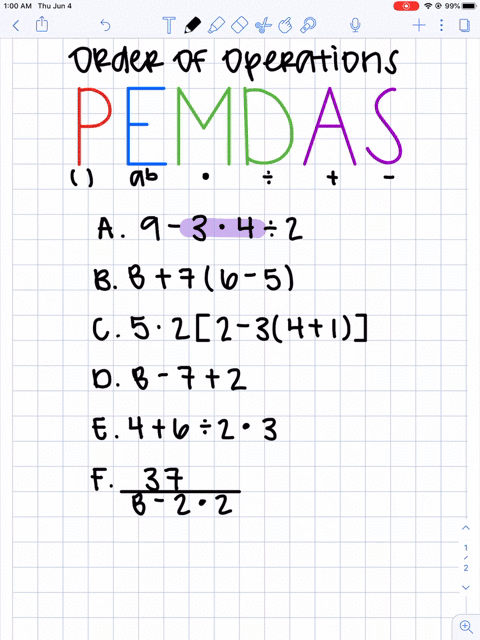 1:00 AM Thu Jun 4 99%
Order of Operations
PEMDAS
( ) aᵇ • ÷ + −
A. 9 − 3 • 4 ÷ 2
B. 8 + 7 ( 6 − 5 )
C. 5 • 2 [ 2 − 3 ( 4 + 1 ) ]
D. 8 − 7 + 2
E. 4 + 6 ÷ 2 • 3
F. 37
8 − 2 • 2
1
2